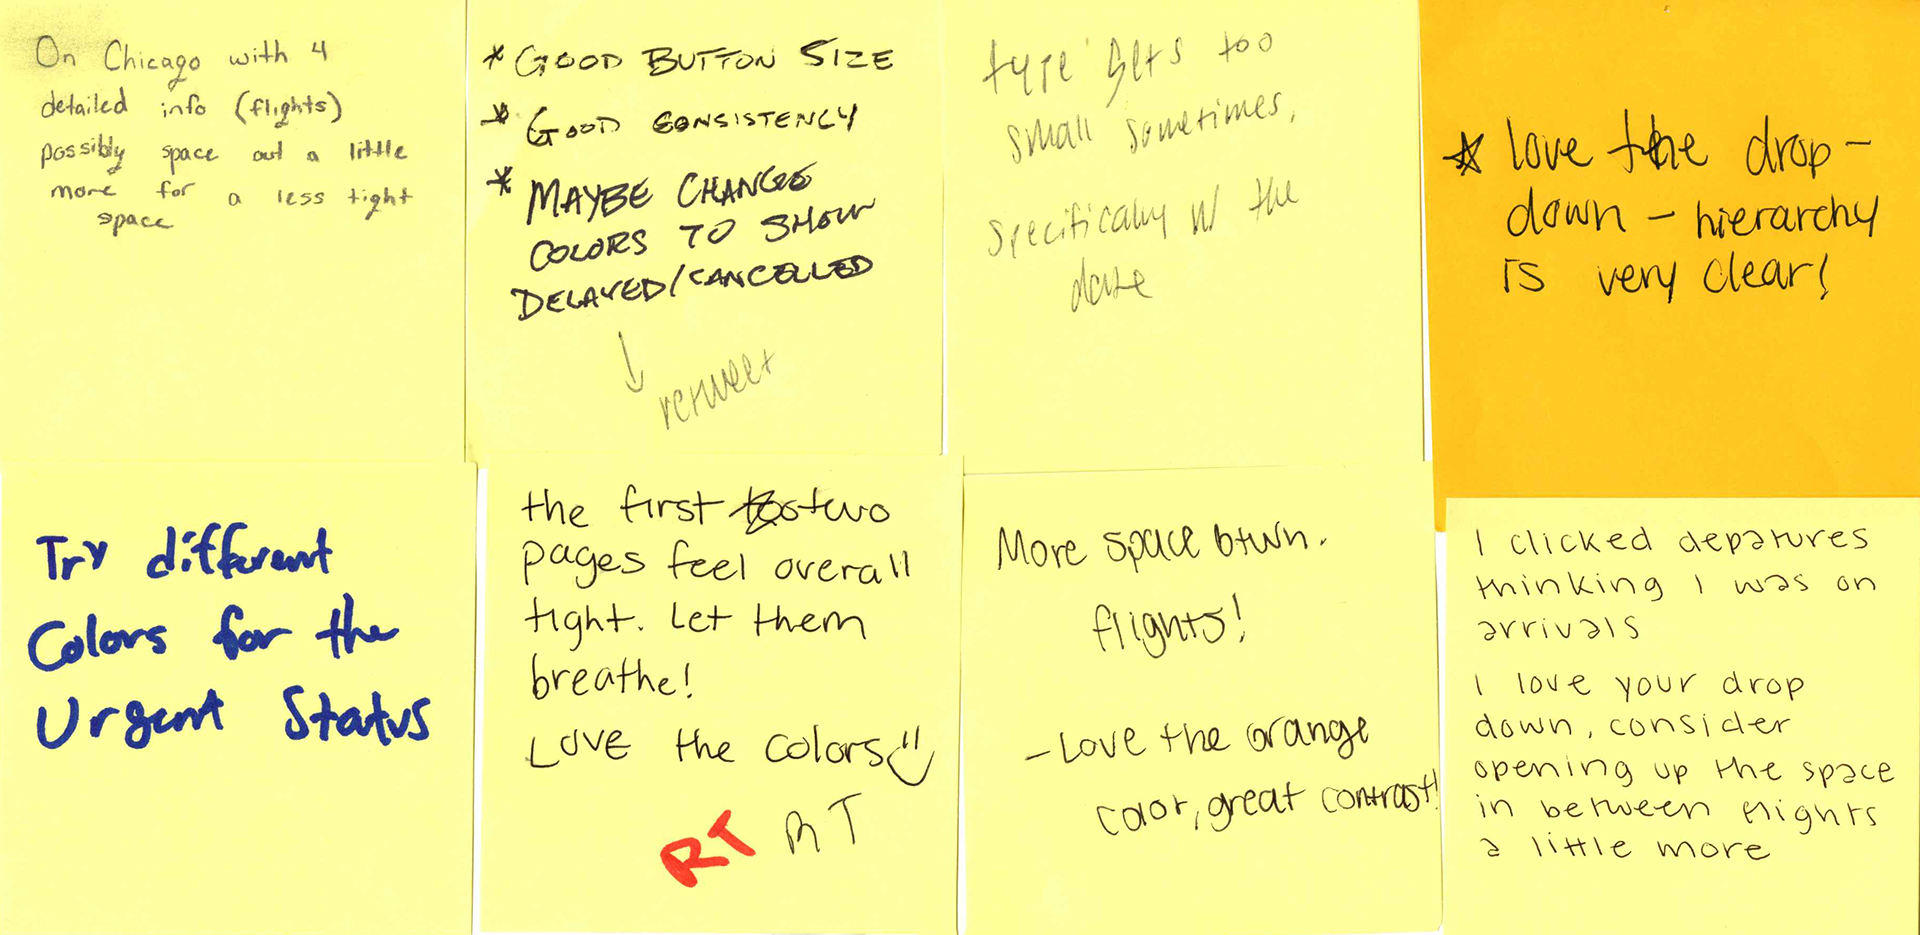 On Chicago with 4
detailed info (flights)
possibly space out a little
more for a less tight
space
* GOOD BUTTON SIZE
* GOOD CONSISTENCY
* MAYBE CHANGE
COLORS TO SHOW
DELAYED/CANCELLED
↓
retweet
type gets too
small sometimes,
specifically w/ the
date
* love the drop-
down - hierarchy
is very clear!
Try different
Colors for the
Urgent Status
the first two
pages feel overall
tight. Let them
breathe!
LOVE the colors
RT RT
More space btwn.
flights!
- Love the orange
color, great contrast!
I clicked depatures
thinking I was on
arrivals
I love your drop
down, consider
opening up the space
in between flights
a little more